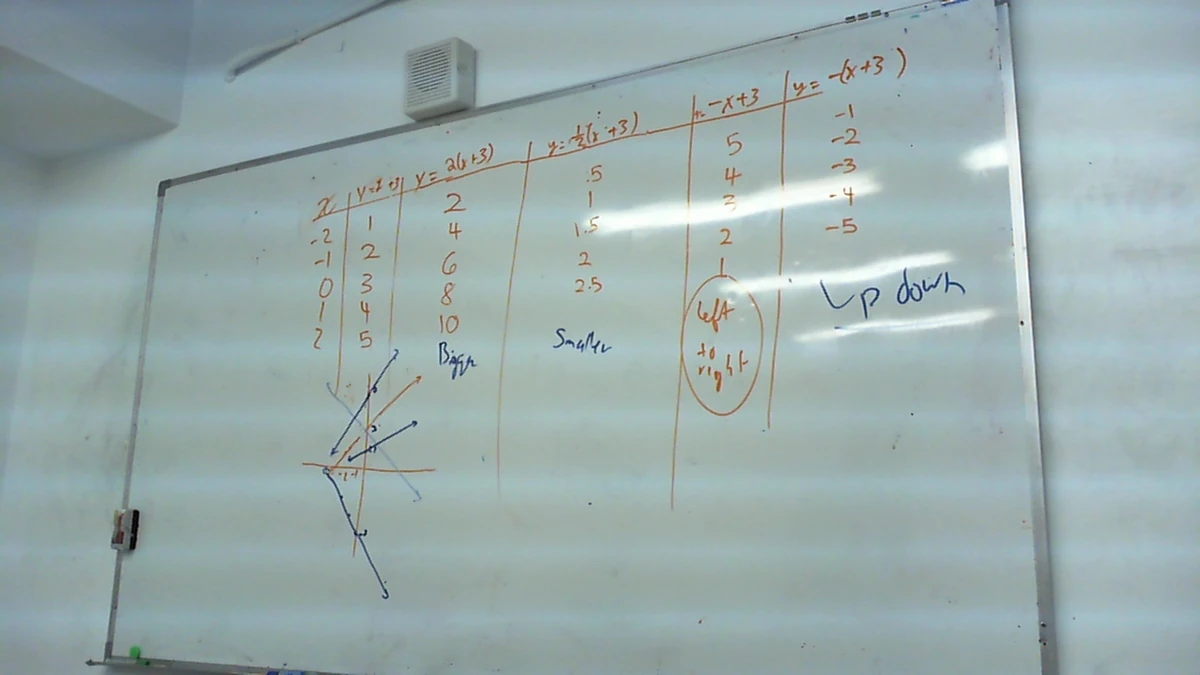 x y=x+3 y=2(x+3) y=½(x+3) -x+3 y=-(x+3)
-2 1 2 .5 5 -1
-1 2 4 1 4 -2
0 3 6 1.5 3 -3
1 4 8 2 2 -4
2 5 10 2.5 1 -5
Bigger Smaller left to right Up down